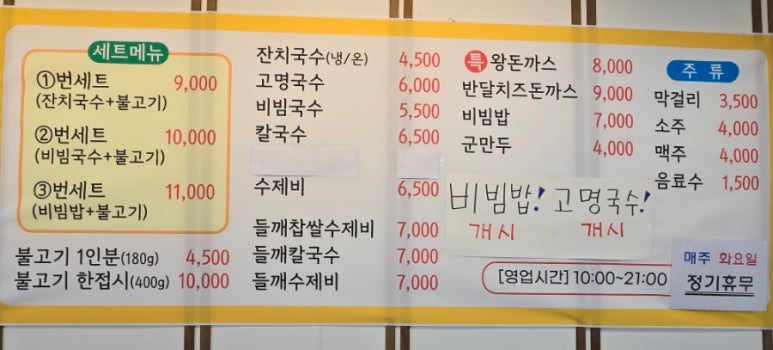 세트메뉴
①번세트 9,000
(잔치국수+불고기)
②번세트 10,000
(비빔국수+불고기)
③번세트 11,000
(비빔밥+불고기)
불고기 1인분(180g) 4,500
불고기 한접시(400g) 10,000
잔치국수(냉/온) 4,500
고명국수 6,000
비빔국수 5,500
칼국수 6,500
수제비 6,500
들깨찹쌀수제비 7,000
들깨칼국수 7,000
들깨수제비 7,000
특 왕돈까스 8,000
반달치즈돈까스 9,000
비빔밥 7,000
군만두 4,000
비빔밥!
개시
고명국수!
개시
주 류
막걸리 3,500
소주 4,000
맥주 4,000
음료수 1,500
[영업시간] 10:00~21:00
매주 화요일
정기휴무